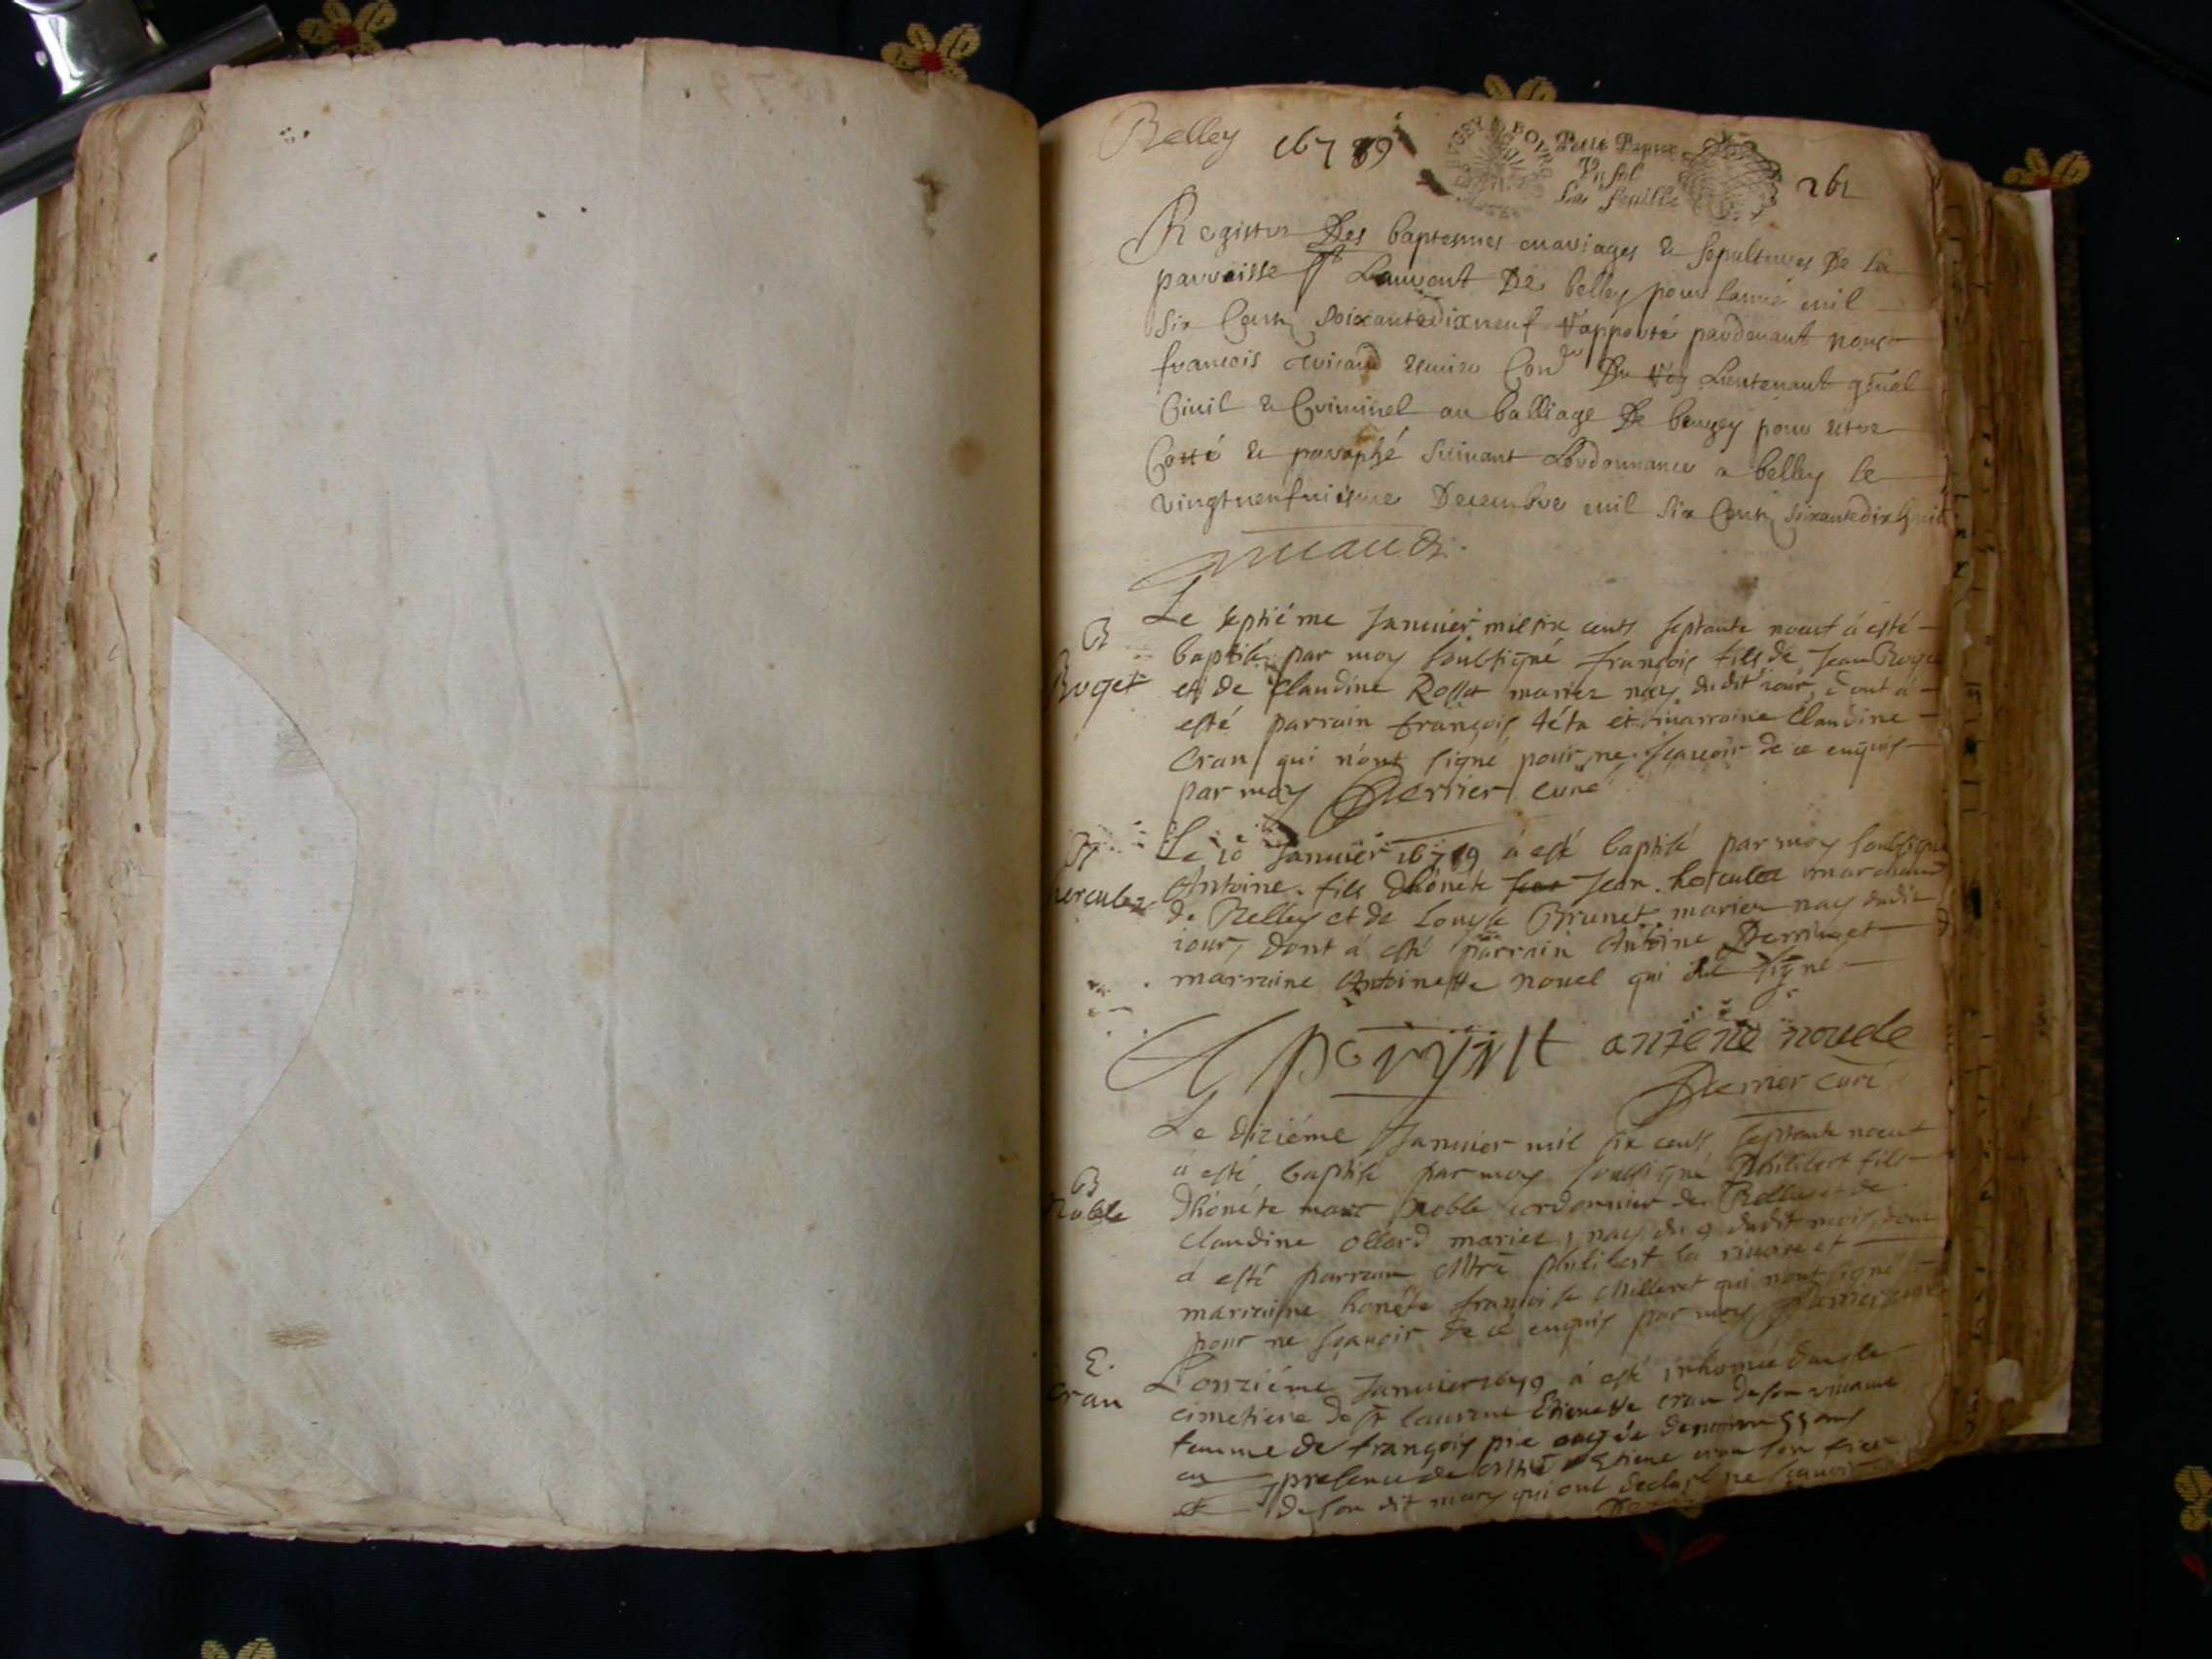 Belley 1679
BUGEY
Petit Papier
Vn sol
La feuille
261
Registre Des baptesmes mariages & sepultures De la
parroisse St Laurent De belley pour lanné mil
Six Cents Soixantedixneuf rapporté pardevant nous
francois escuier Con.er Du Roy Lieutenant gñal
Civil & Criminel au balliage De beugey pour estre
Cotté & paraphé suivant Lordonnance a belley le
vingtneufuiesme Decembre mil Six Cents soixantedixhuit
B
Buget
Le septiéme Januier mil six cents septante noeuf á esté
baptisé par moy soubsigné françois fils de Jean Buget
et de Claudine Rosset mariez nay dudit iour, dont á
esté parrain françois téta et marraine Claudine
Cran qui n'ont signé pour ne sçauoir de ce enquis
par moy Perrier curé
B
hercules
Le 10 Januier 1679 á esté baptisé par moy soubsigné
Antoine fils d'honéte Jean hercules marchand
de Belley et de Louyse Brunet mariez nay dudit
iour, dont á esté parrain Antoine et
marraine Antoinette nouel qui ont signé
antene nouele
Perrier curé
B
Noble
Le diziéme Januier mil six cents septante noeuf
á esté baptisé par moy soussigné philibert fils
d'honéte marc noble cordonnier de Belley et de
claudine ollard mariez, nay du 9 dudit mois, dont
á esté parrain Mtre philibert la riuoire et
marraine honéte françoise Milleret qui n'ont signé
pour ne sçauoir de ce enquis par moy Perrier curé
E.
Cran
L'onziéme Januier 1679 á esté inhumée dans le
cimetiere de St laurent Etienette cran de son viuant
femme de françois pie aagée denuiron 55 ans
en presence de Mtre Etiene cran son frere
et de son dit mary qui ont declaré ne sçauoir